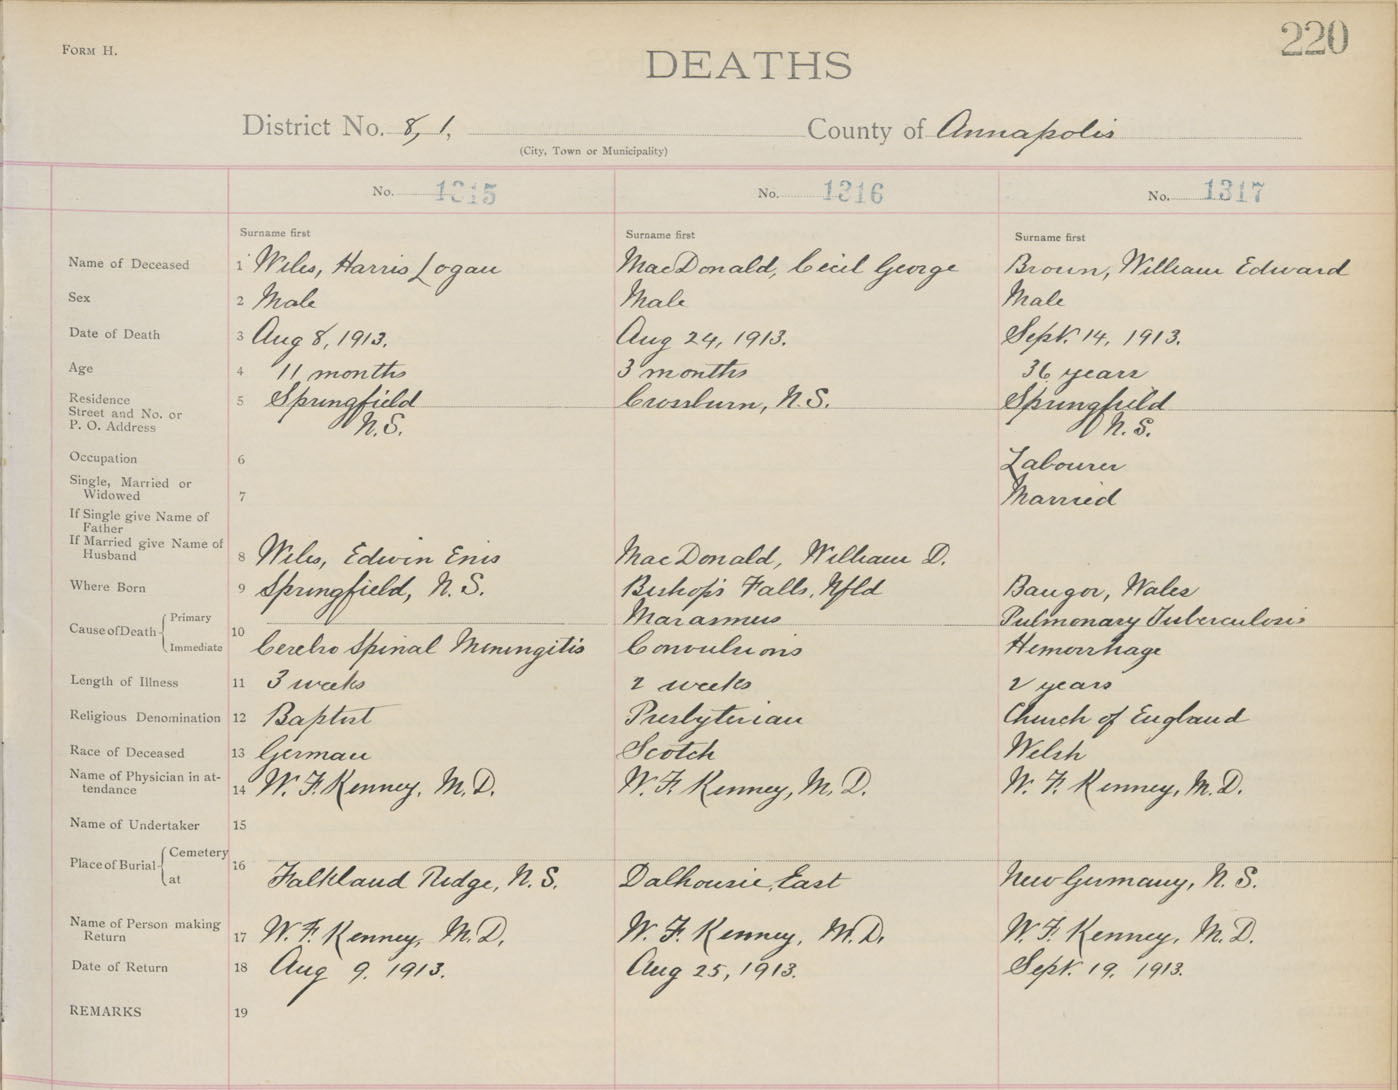 FORM H.
220
DEATHS
District No. 8, 1, County of Annapolis
(City, Town or Municipality)
No. 1315 No. 1316 No. 1317
Surname first Surname first Surname first
Name of Deceased 1 Wiles, Harris Logan MacDonald, Cecil George Brown, William Edward
Sex 2 Male Male Male
Date of Death 3 Aug 8, 1913. Aug 24, 1913. Sept. 14, 1913.
Age 4 11 months 3 months 36 years
Residence 5 Springfield Crossburn, N.S. Springfield
Street and No. or
P. O. Address N.S. N.S.
Occupation 6 Labourer
Single, Married or
Widowed 7 Married
If Single give Name of
Father
If Married give Name of
Husband 8 Wiles, Edwin Enis MacDonald, William D.
Where Born 9 Springfield, N.S. Bishop's Falls, Nfld Bangor, Wales
Cause of Death Primary Marasmus Pulmonary Tuberculosis
10 Immediate Cerebro Spinal Meningitis Convulsions Hemorrhage
Length of Illness 11 3 weeks 2 weeks 2 years
Religious Denomination 12 Baptist Presbyterian Church of England
Race of Deceased 13 German Scotch Welsh
Name of Physician in at-
tendance 14 W. F. Kenney, M.D. W. F. Kenney, M.D. W. F. Kenney, M.D.
Name of Undertaker 15
Place of Burial Cemetery 16
at Falkland Ridge, N.S. Dalhousie, East New Germany, N.S.
Name of Person making
Return 17 W. F. Kenney, M.D. W. F. Kenney, M.D. W. F. Kenney, M.D.
Date of Return 18 Aug 9. 1913. Aug 25, 1913. Sept. 19. 1913.
REMARKS 19